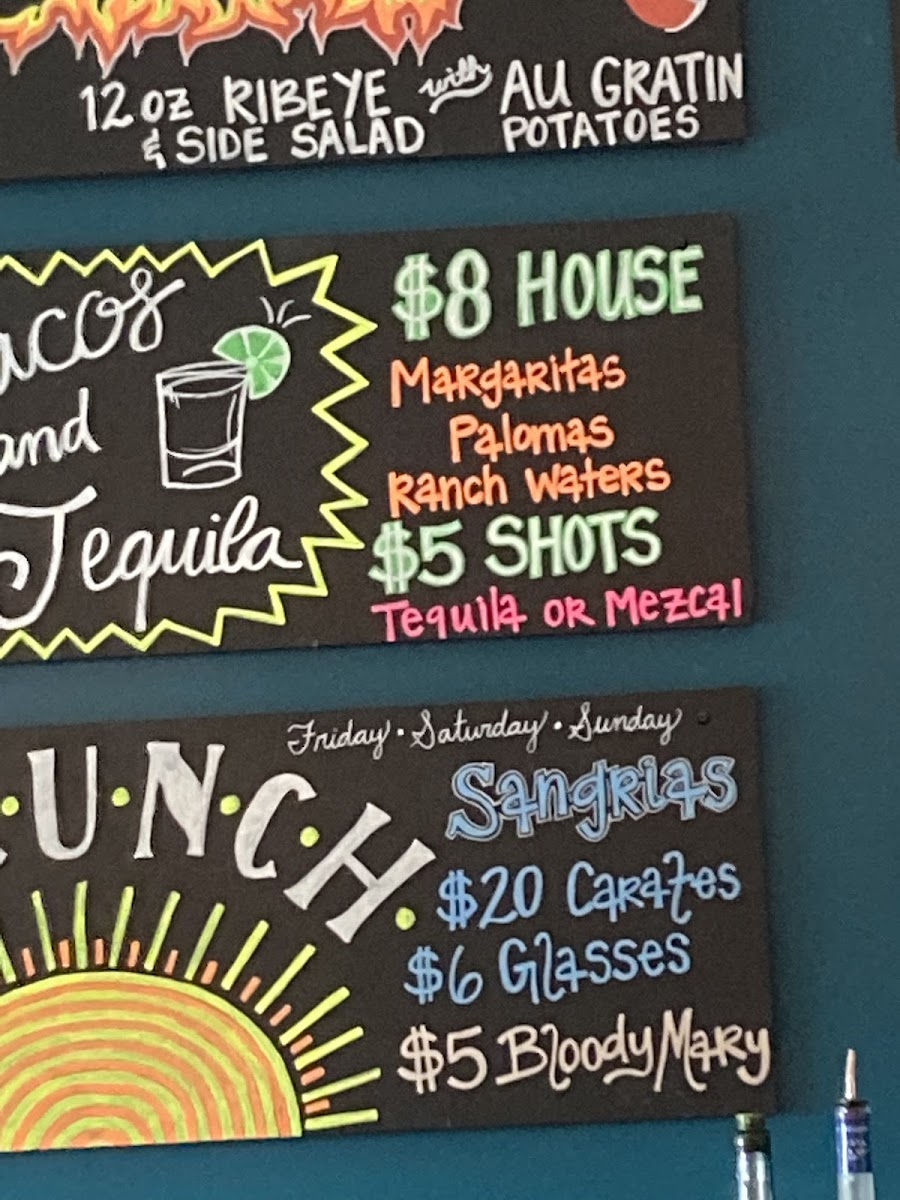 12 oz RIBEYE with AU GRATIN
& SIDE SALAD POTATOES
acos
and
Tequila
$8 HOUSE
Margaritas
Palomas
Ranch Waters
$5 SHOTS
Tequila or Mezcal
Friday · Saturday · Sunday
U·N·C·H·
Sangrias
$20 Carafes
$6 Glasses
$5 Bloody Mary